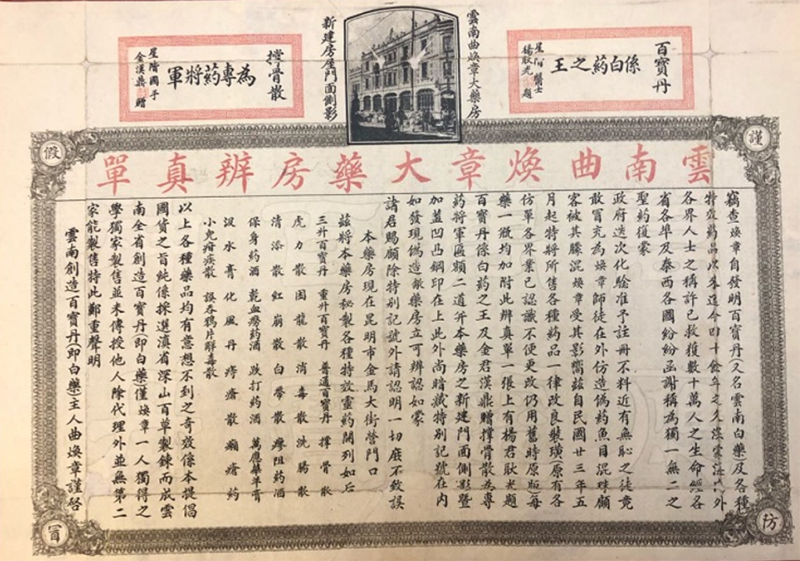 百寳丹
係白葯之王
楊耿光題
雲南曲煥章大葯房
新建房屋門面側影
撐骨散
為專葯將軍
金漢鼎贈
謹防假冒
雲南曲煥章大藥房辨真單
竊查煥章自發明百寳丹(又名雲南白藥)及各種
特效葯品以來迄今四十餘年之久蒙海內外
各界人士之稱許已救獲數十萬人之生命經各
省各埠及泰西各國紛紛函謝稱為獨一無二之
聖葯復蒙
政府迭次化驗准予註冊不料近有無恥之徒竟
敢冒充為煥章師徒在外仿造偽葯魚目混珠顧
客被其朦混煥章受其影響茲自民國廿三年五
月起特將所售各種葯品一律改良製璜原有各
仿單各界業已認識不便更改仍用舊時原版每
藥一瓶均加附此辨真單一張上有楊君耿光題
百寳丹係白葯之王及金君漢鼎贈撐骨散為專
葯將軍區額二道并本葯房之新建門面側影暨
加蓋凹凸鋼印在上此外尚暗藏特別記號在內
如發現偽造敝葯房立可辨認如蒙
請君賜顧除特別記號外請認明一切庶不致誤
本葯房現在昆明市金馬大街營門口
茲將本葯房秘製各種特效靈葯開列如后
三升百寳丹 重升百寳丹 普通百寳丹 撐骨散
虎力散 困龍散 消毒散 洗腸散
清添散 紅崩散 白帶散 瘳阻葯酒
保身葯酒 乾血癆葯酒 跌打葯酒 萬應藥羊膏
汲水膏 化風丹 痔瘡散 癩瘡葯
小兒疳疾散 誤吞鴉片解毒散
以上各種藥品均有意想不到之奇效係本提倡
國貨之旨純係採選滇省深山百草製鍊而成雲
南全省創造百寳丹即白藥僅煥章一人獨得之
學獨家製售並未傳授他人除代理外並無第二
家能製售特此鄭重聲明
雲南創造百寳丹即白藥主人曲煥章謹啓